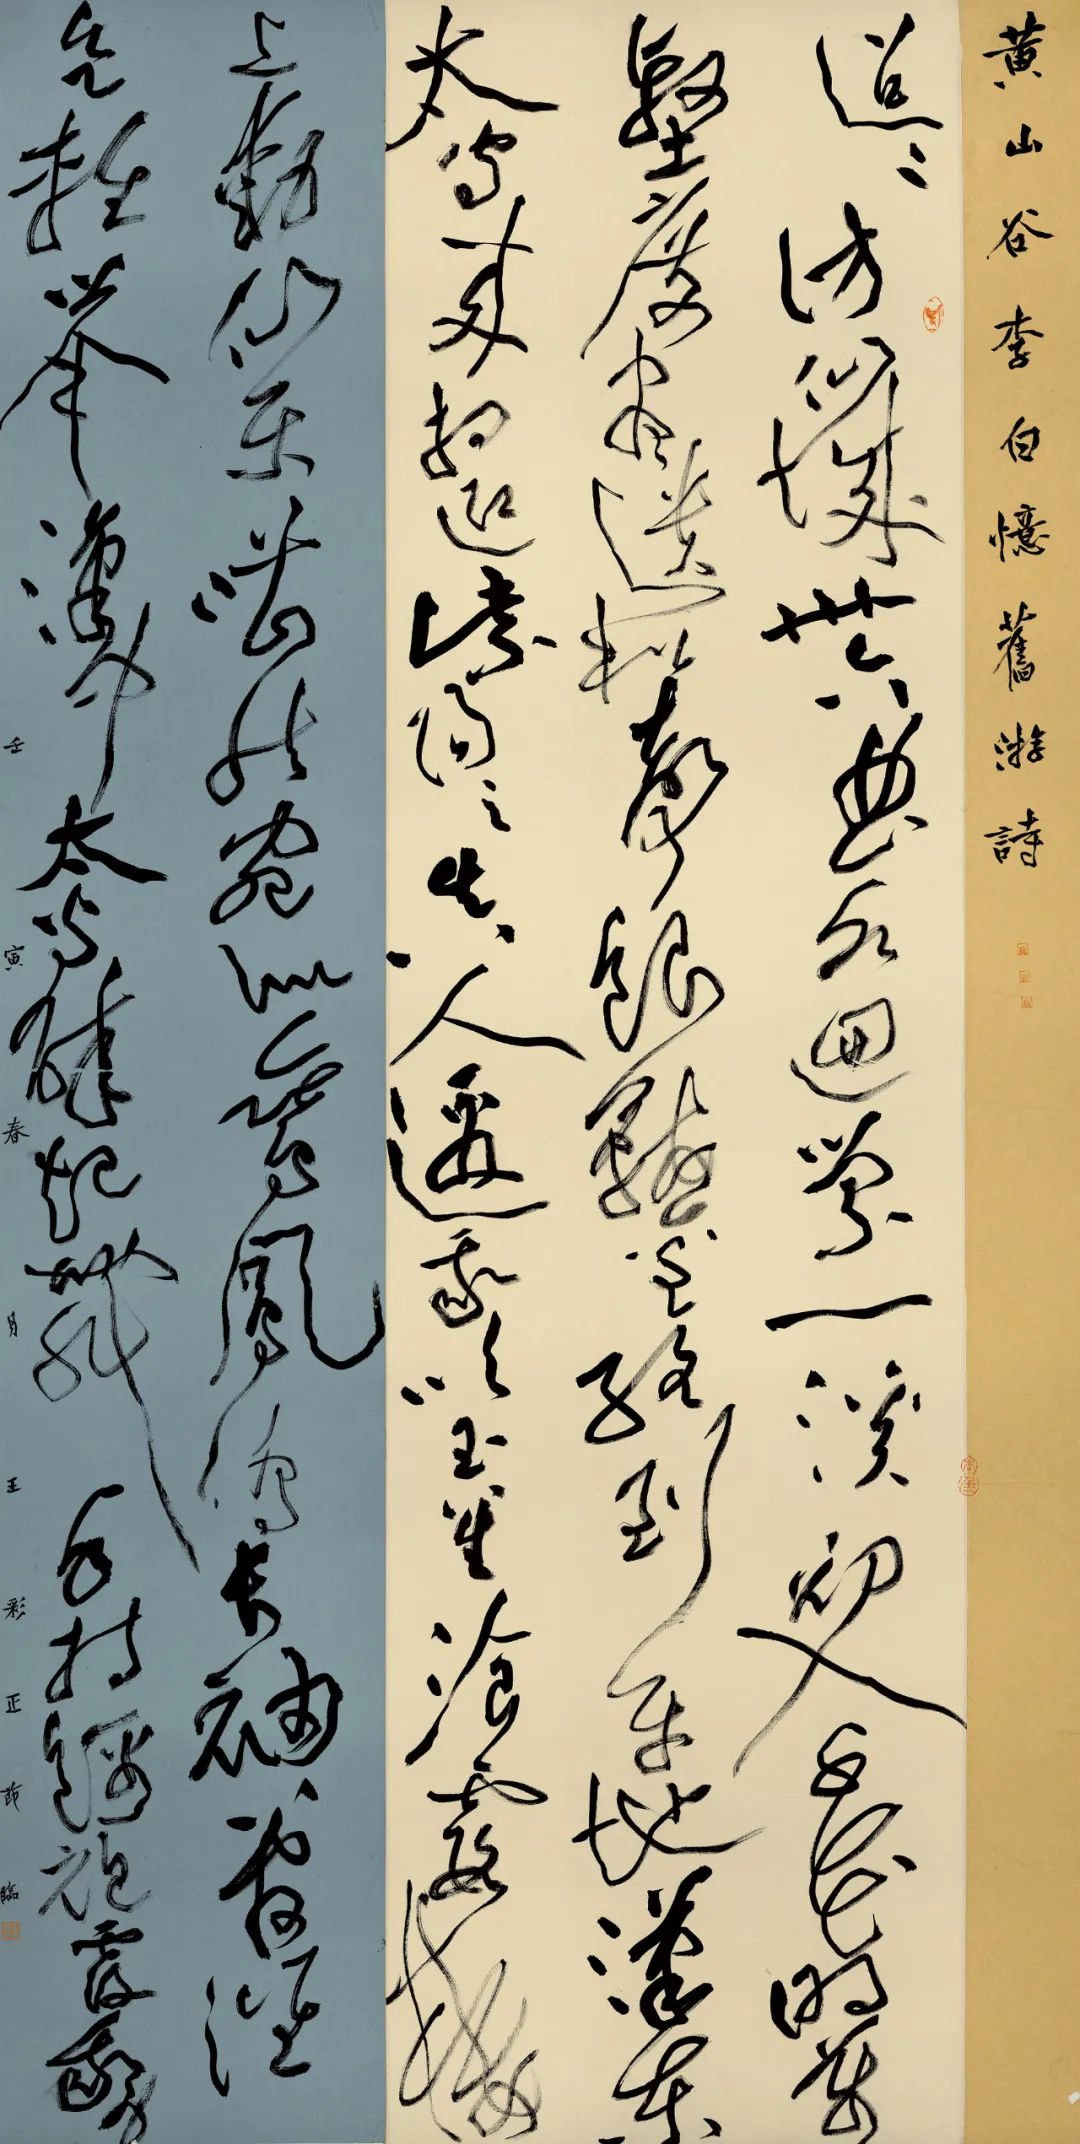 黃山谷李白憶舊游詩
迢〻訪仙城卅六曲水迴縈一溪初入千花明萬
壑度盡松聲銀鞍金絡到平地漢東
太守來相迎紫陽之真人邀我吹玉笙湌霞樓
上動仙樂嘈然宛似鸞鳳鳴長袖管催
欲輕舉漢中太守醉起舞手持錦袍覆我身
壬寅春月王彩正臨